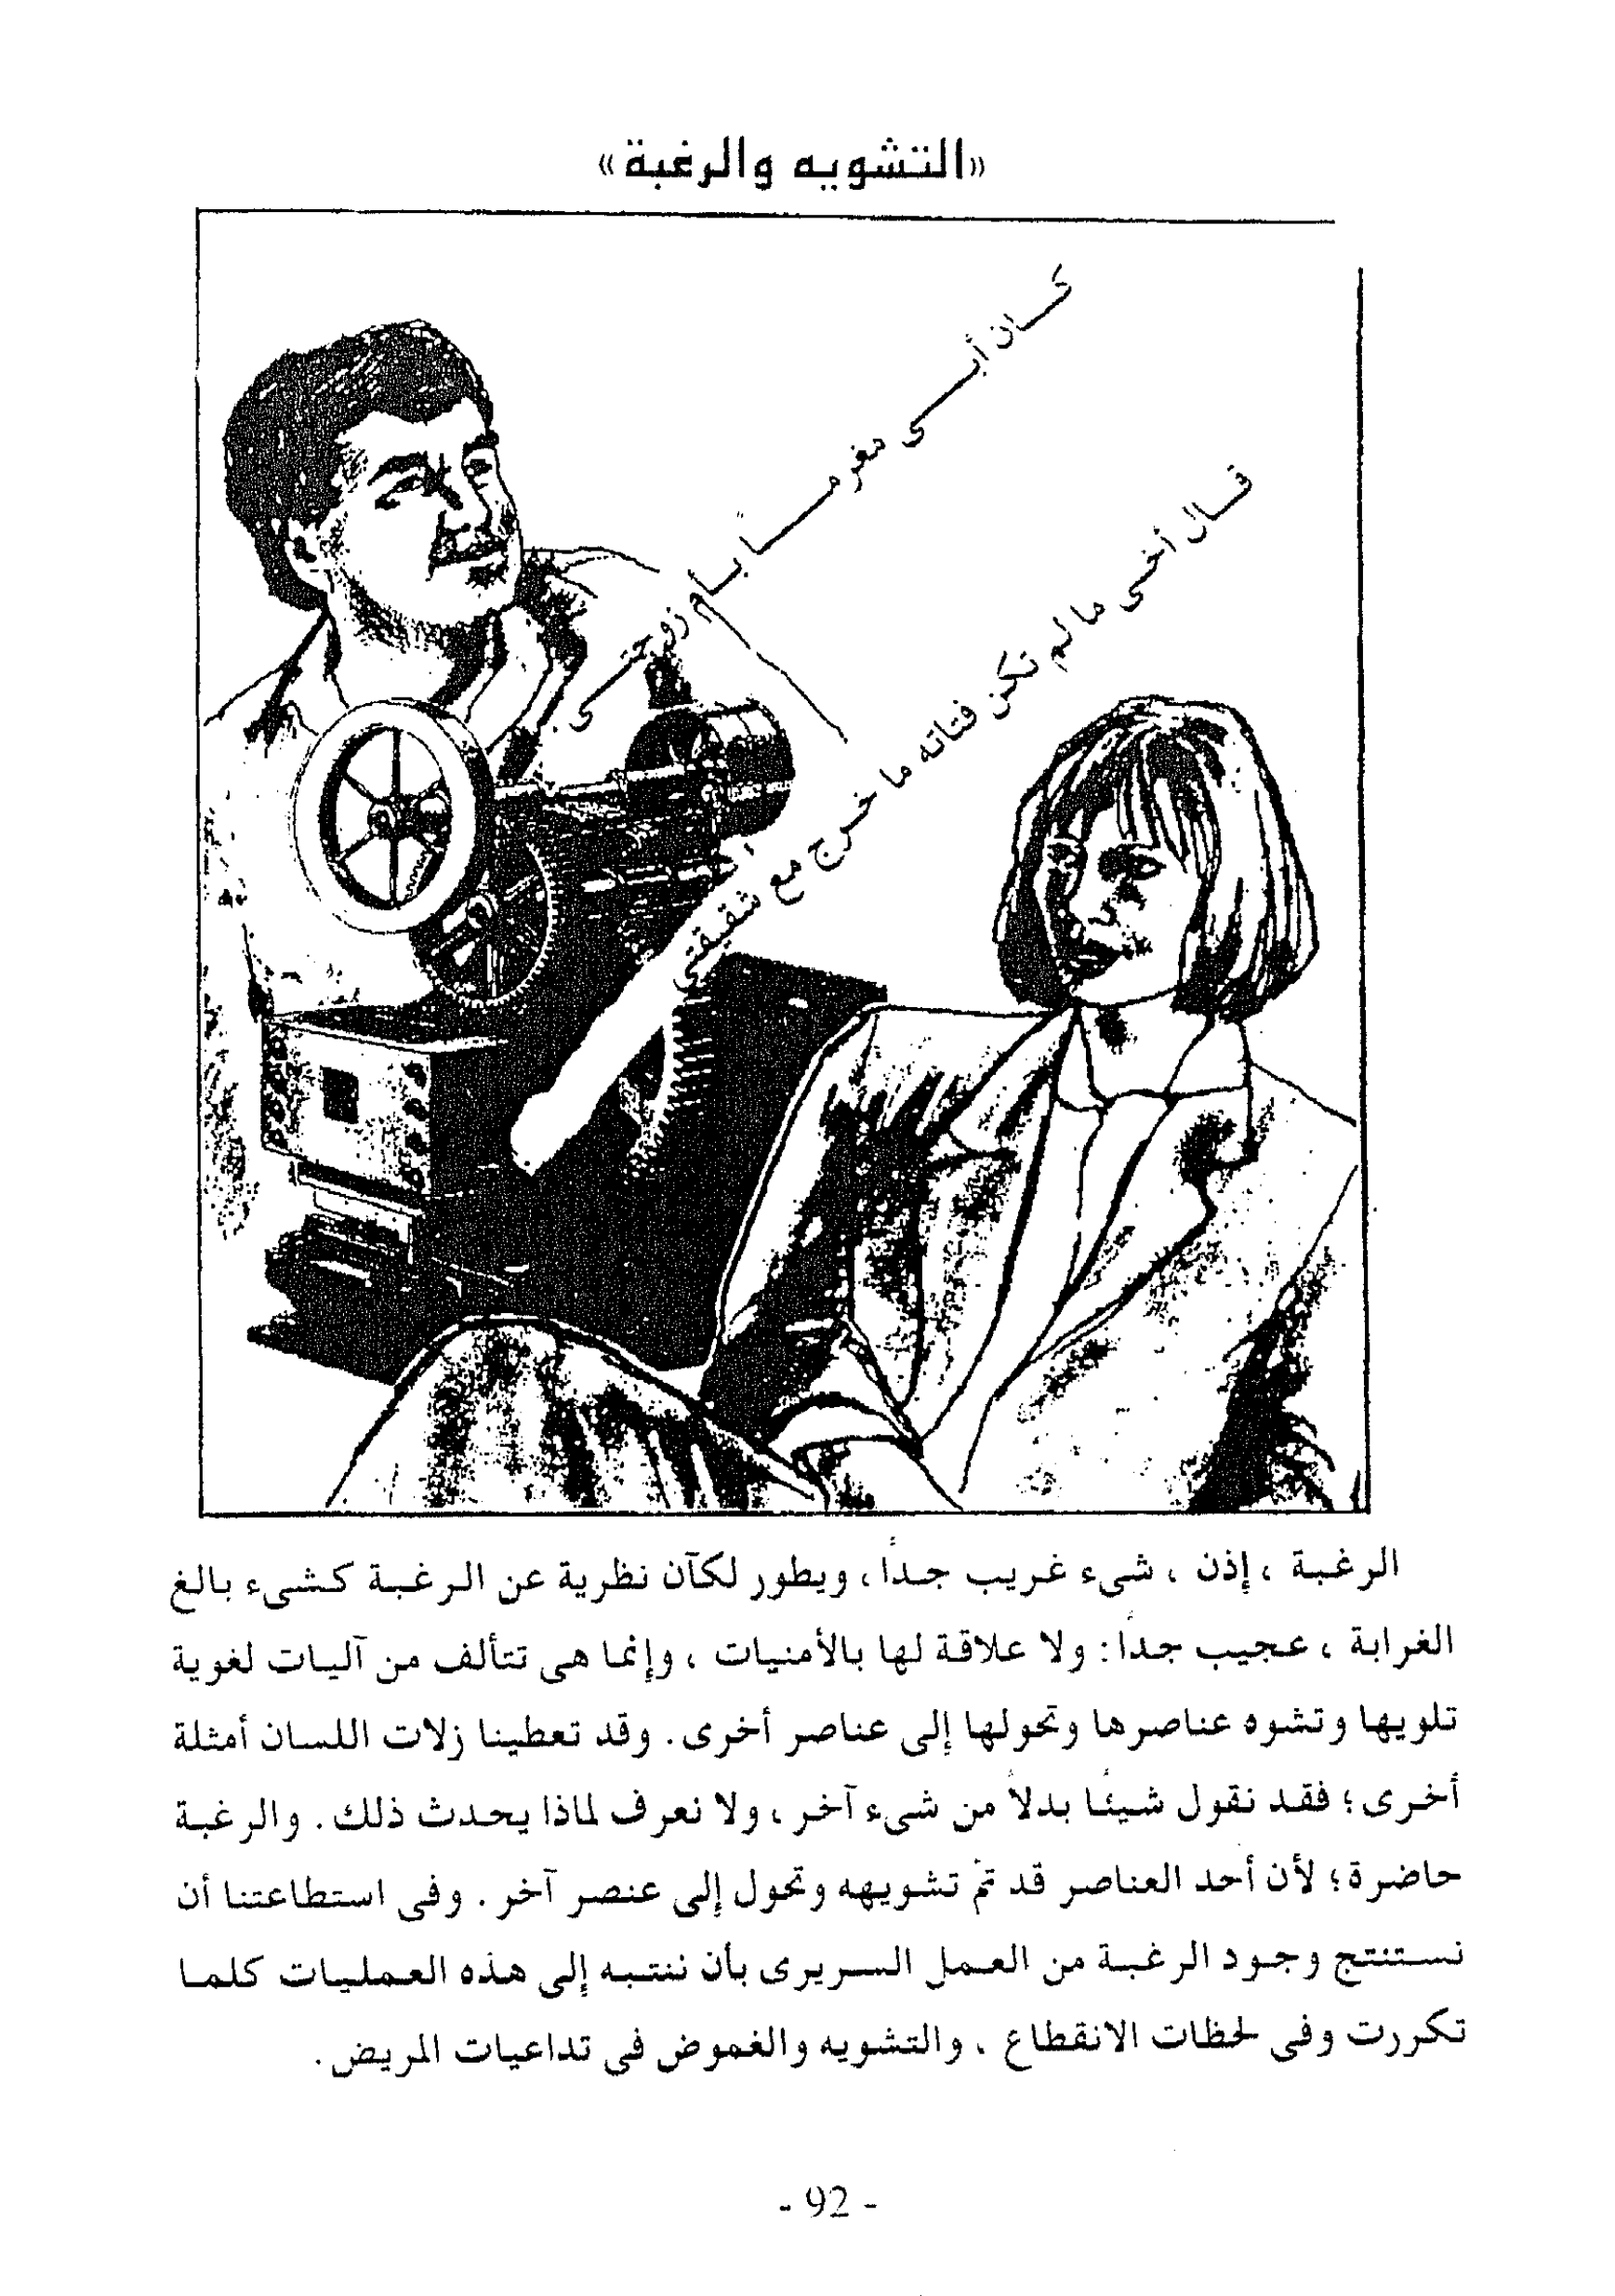 «التشويه والرغبة»
كان أبى مغرمًا بأم زوجتى.
قال أخى ما لم تكن فتاته ما خرج مع شقيقتى
الرغبة ، إذن ، شىء غريب جدًا ، ويطور لكآن نظرية عن الرغبة كشىء بالغ
الغرابة ، عجيب جدًا : ولا علاقة لها بالأمنيات ، وإنما هى تتألف من آليات لغوية
تلويها وتشوه عناصرها وتحولها إلى عناصر أخرى . وقد تعطينا زلات اللسان أمثلة
أخرى ؛ فقد نقول شيئًا بدلاً من شىء آخر ، ولا نعرف لماذا يحدث ذلك . والرغبة
حاضرة ؛ لأن أحد العناصر قد تم تشويهه وتحول إلى عنصر آخر . وفى استطاعتنا أن
نستنتج وجود الرغبة من العمل السريرى بأن ننتبه إلى هذه العمليات كلما
تكررت وفى لحظات الانقطاع ، والتشويه والغموض فى تداعيات المريض .
- 92 -